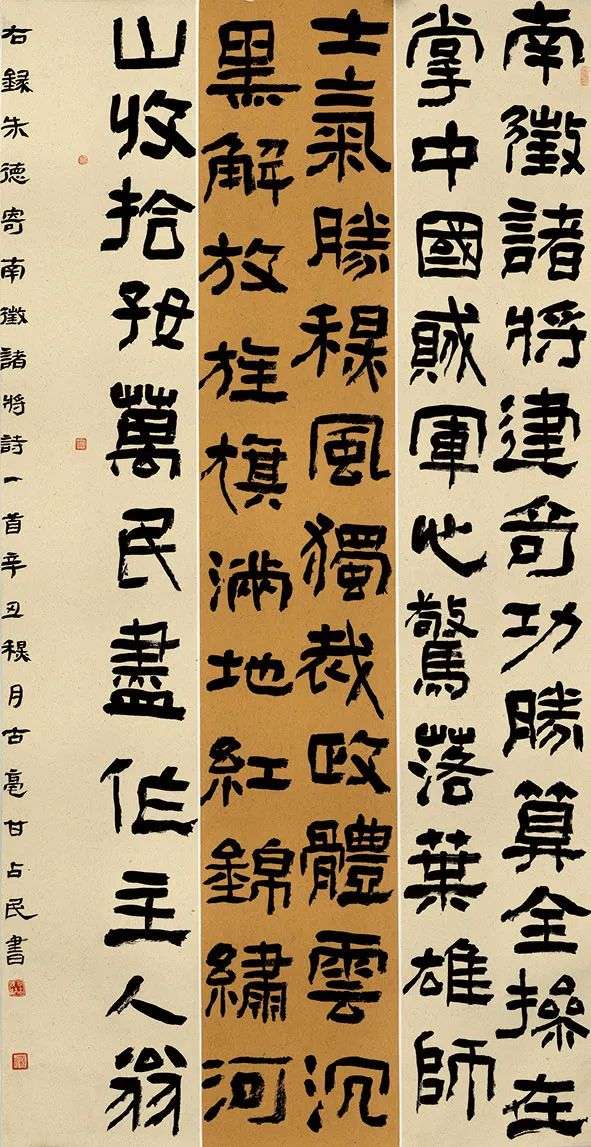 南徵諸將建奇功勝算全操在
掌中國賊軍心驚落葉雄師
士氣勝秋風獨裁政體雲沉
黑解放旌旗滿地紅錦繡河
山收拾好萬民盡作主人翁
右錄朱德寄南徵諸將詩一首辛丑秋月古亳甘占民書